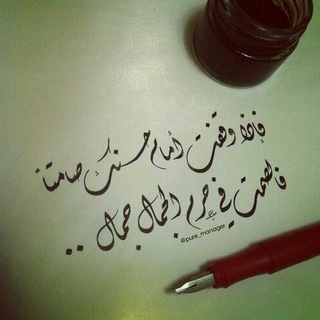 فإذا وقفت أمام حسنك صامتاً
فالصمت في حرم الجمال جمال ..
@pure_manager